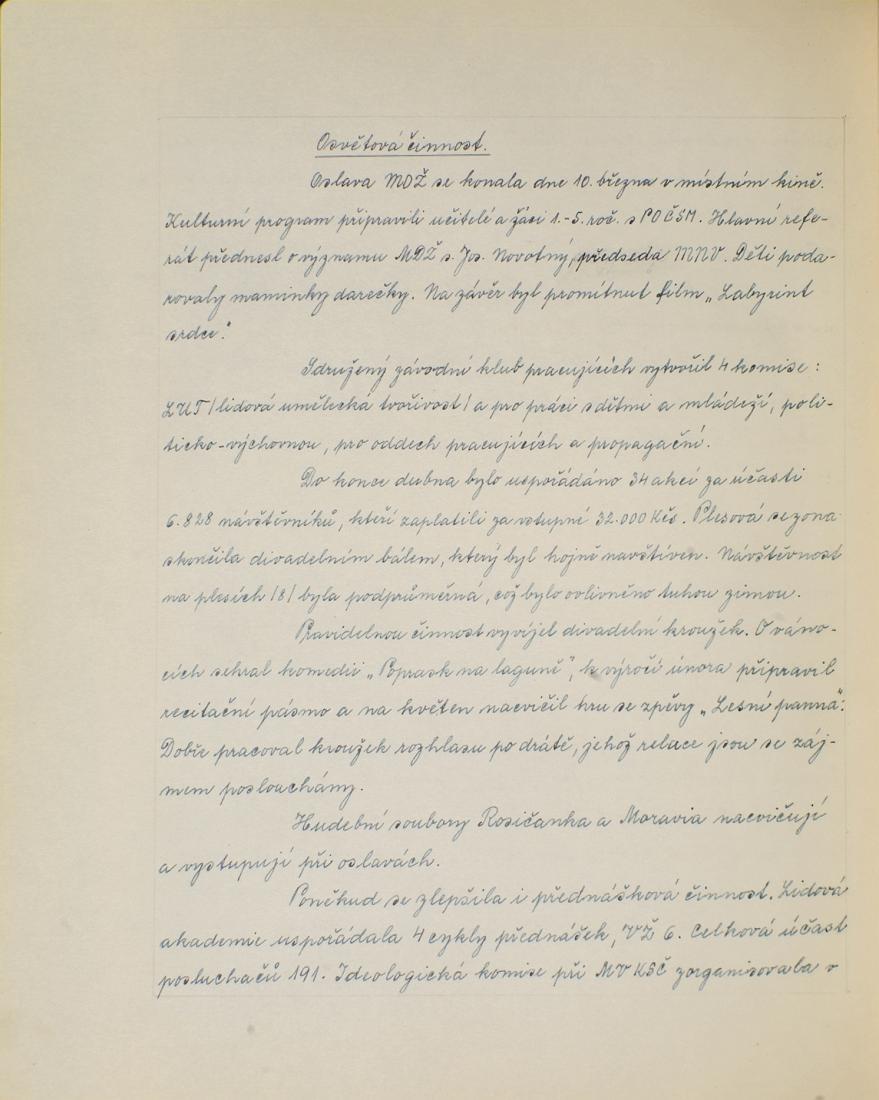 Osvětová činnost.
Oslava MDŽ se konala dne 10. března v místním kině.
Kulturní program připravili učitelé a žáci 1.-5. roč. s PO ČSM. Hlavní refe-
rát přednesl o významu MDŽ s. Jos. Novotný, předseda MNV. Děti poda-
rovaly maminky darečky. Na závěr byl promítnut film „Labyrint
srdce".
Sdružený závodní klub pracujících vytvořil 4 komise:
LUT /lidová umělecká tvořivost/ a pro práci s dětmi a mládeží, poli-
ticko-výchovnou, pro oddech pracujících a propagační.
Do konce dubna bylo uspořádáno 34 akcí za účasti
6.828 návštěvníků, kteří zaplatili za vstupní 32.000 Kčs. Plesová sezona
skončila divadelním bálem, který byl hojně navštíven. Návštěvnost
na plesích /8/ byla podprůměrná, což bylo ovlivněno tuhou zimou.
Pravidelnou činnost vyvíjel divadelní kroužek. O váno-
cích sehrál komedii „Poprask na laguně", k výročí února připravil
recitační pásmo a na květen nacvičil hru se zpěvy „Lesní panna".
Dobře pracoval kroužek rozhlasu po drátě, jehož relace jsou se záj-
mem poslouchány.
Hudební soubory Rosičanka a Moravia nacvičují
a vystupují při oslavách.
Poněkud se zlepšila i přednášková činnost. Lidová
akademie uspořádala 4 cykly přednášek, VŽ 6. Celková účast
posluchačů 191. Ideologická komise při MV KSČ zorganisovala v